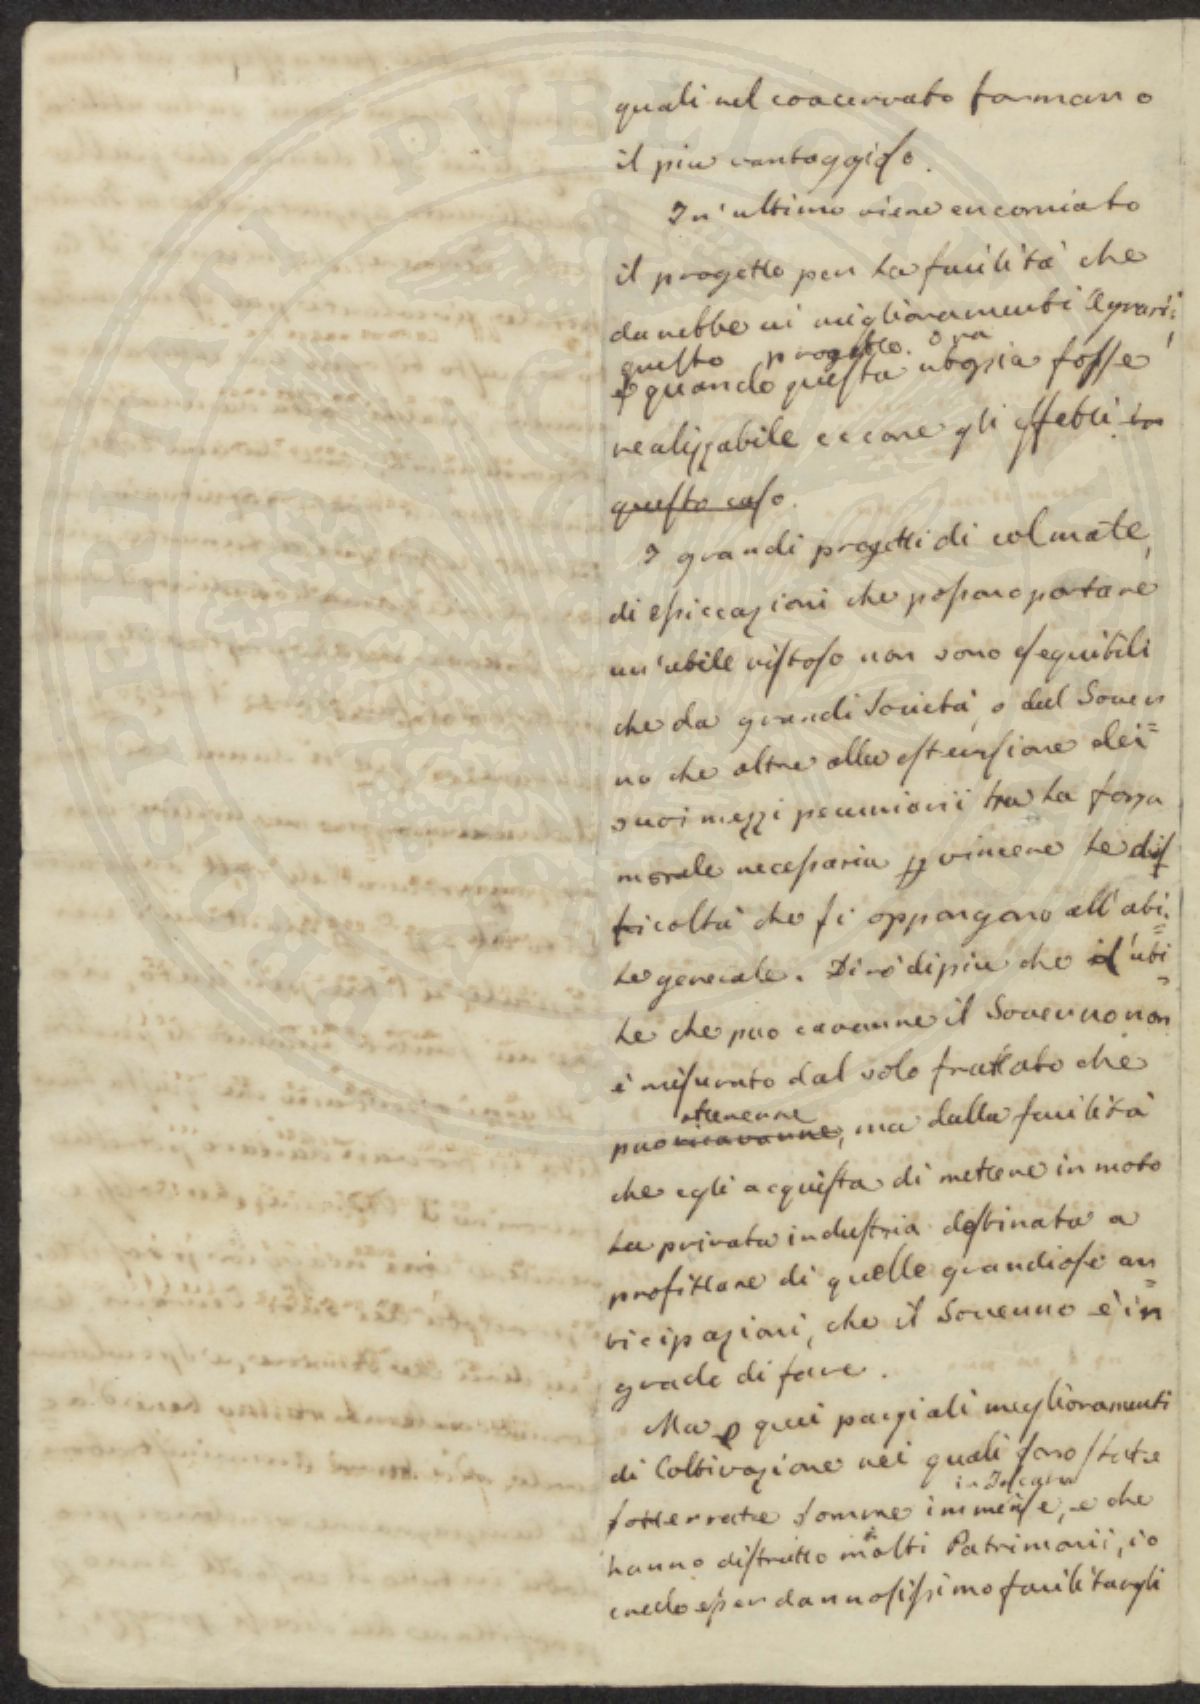 quali nel coacervato formano
il piu vantaggioso.
In' ultimo viene encomiato
il progetto per la facilità che
darebbe ai miglioramenti Agrarii
questo progetto. Ora
e quando questa utopia fosse
realizzabile eccone gli effetti in
questo caso.
I grandi progetti di colmate,
di essiccazioni che possono portare
un'utile vistoso non sono eseguibili
che da grandi Società, o dal Gover
no che oltre alla estensione dei=
suoi mezzi pecuniarii ha la forza
morale necessaria p vincere le dif
ficoltà che si oppongono all'uti=
le generale. Dirò di piu che l'uti=
le che puo cavarne il Governo non
è misurato dal solo fruttato che
ottenerne
puo ricavarne, ma dalla facilità
che egli acquista di mettere in moto
la privata industria destinata a
profittare di quelle grandiose an=
ticipazioni, che il Governo è in
grado di fare.
Ma p quei parziali miglioramenti
di Coltivazione nei quali sono state
in Toscana
sotterrate somme immense, e che
hanno distrutto molti Patrimonii, io
credo esser dannosissimo facilitargli
PUBLICAE
POSTERITATI